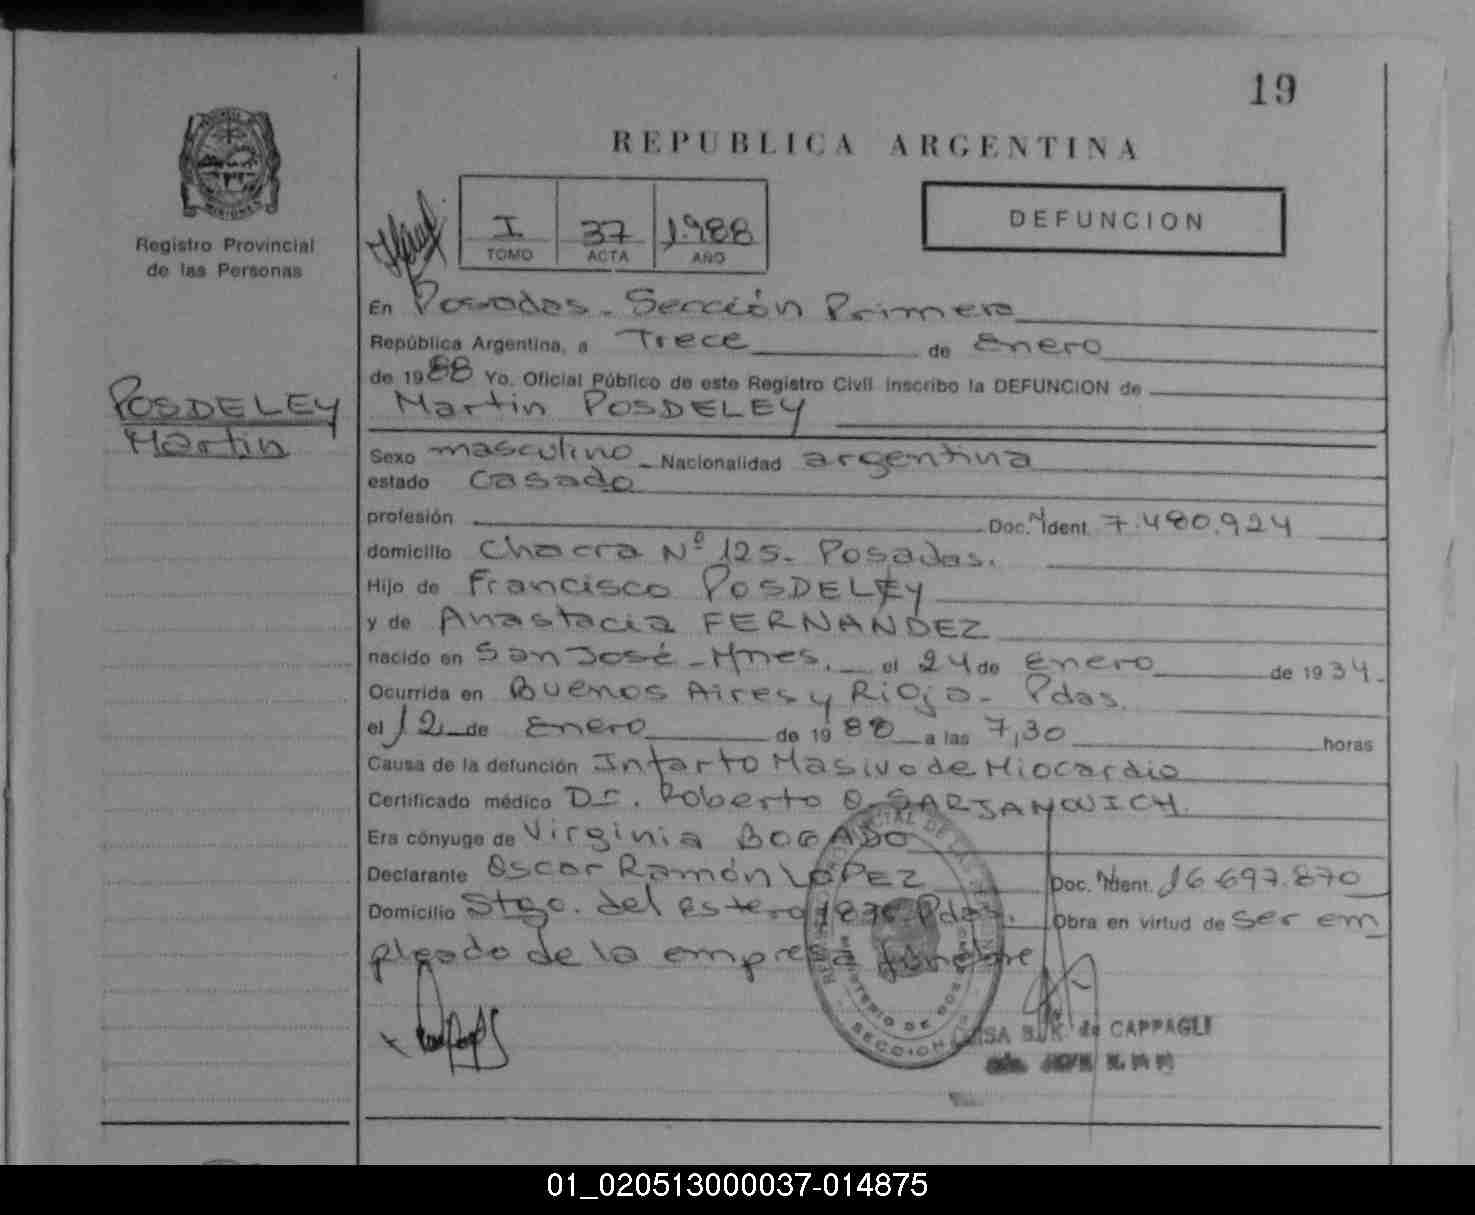 19
REPUBLICA ARGENTINA
MISIONES
Registro Provincial
de las Personas
I 37 1.988
TOMO ACTA AÑO
DEFUNCION
En Posadas - Sección Primera
República Argentina, a Trece de Enero
de 1988 Yo, Oficial Público de este Registro Civil inscribo la DEFUNCION de
Martin POSDELEY
POSDELEY
Martin
Sexo masculino - Nacionalidad argentina
estado Casado
profesión Doc. N Ident. 7.480.924
domicilio Chacra Nº 125 - Posadas.
Hijo de Francisco POSDELEY
y de Anastacia FERNANDEZ
nacido en San José - Mnes. el 24 de Enero de 1934.
Ocurrida en Buenos Aires y Rioja - Pdas.
el 12 de Enero de 1988 a las 7,30 horas
Causa de la defunción Infarto Masivo de Miocardio
Certificado médico Dr. Roberto O. SARJANOVICH.
Era cónyuge de Virginia BOGADO
Declarante Oscar Ramón LOPEZ Doc. N Ident. 16.697.870
Domicilio Stgo. del Estero Pdas. Obra en virtud de ser em
pleado de la empresa fúnebre
MINISTERIO DE
SECCION
de CAPPAGLI
01_020513000037-014875